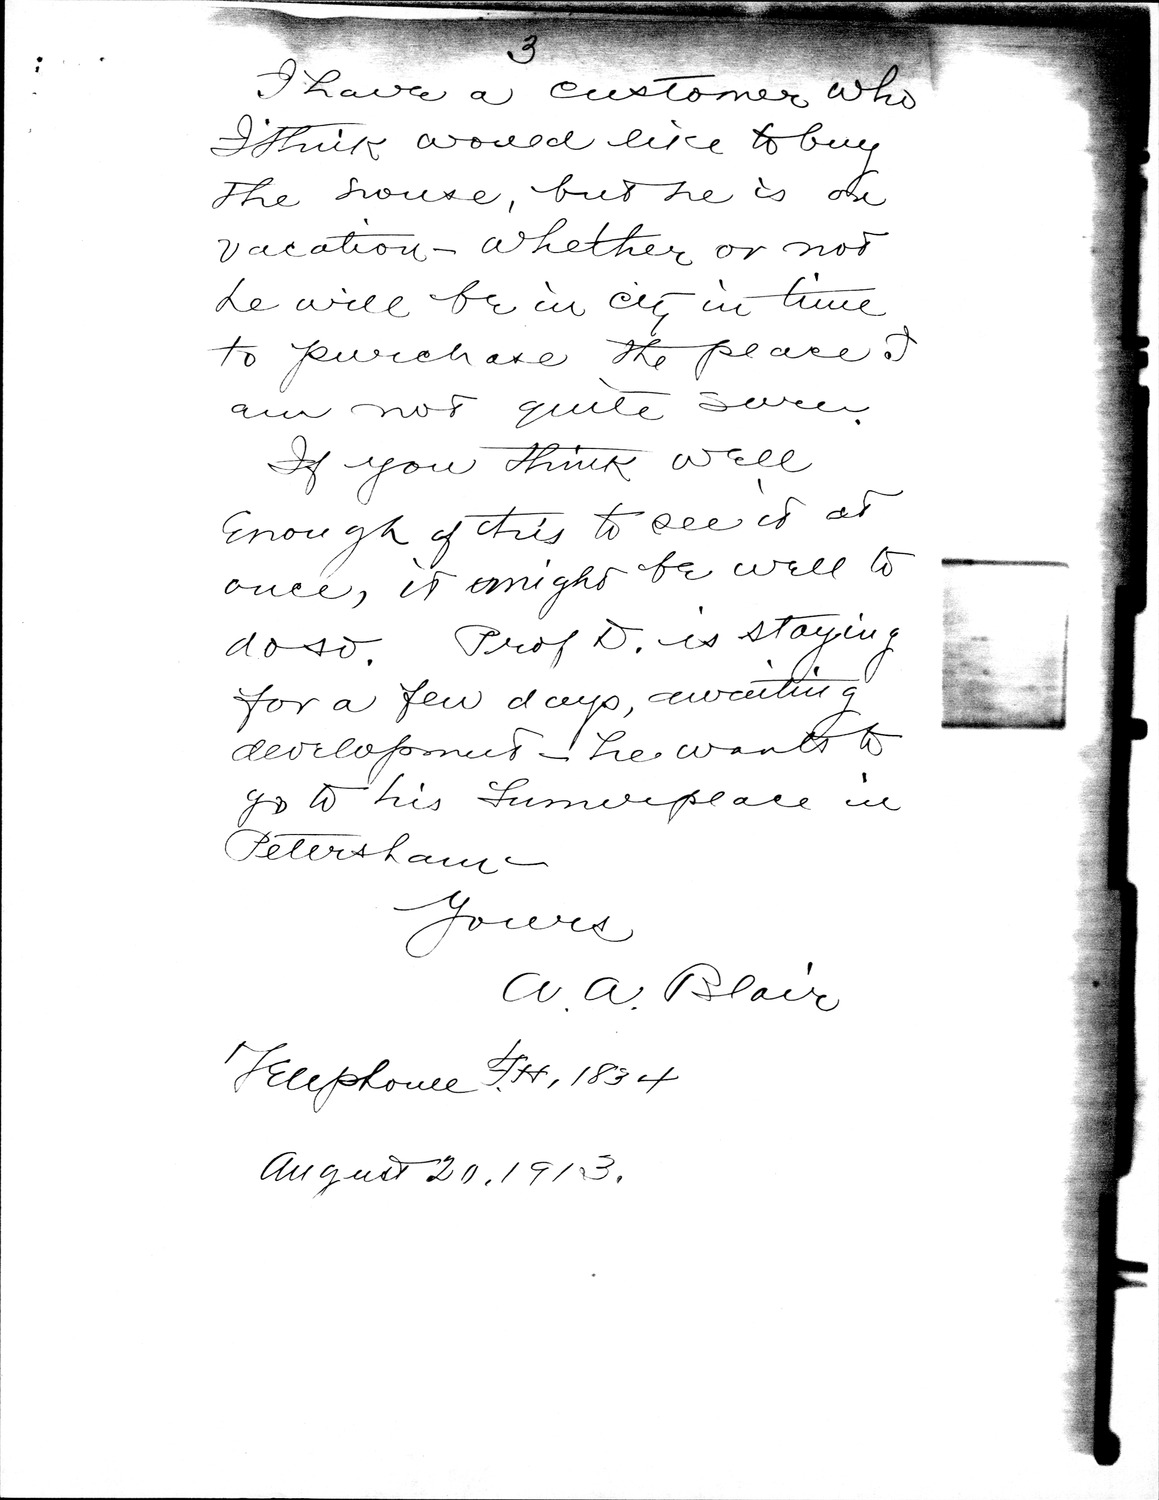 3
I have a customer who
I think would like to buy
the house, but he is on
vacation - whether or not
he will be in city in time
to purchase the place I
am not quite sure.
If you think well
enough of this to see it at
once, it might be well to
do so. Prof D. is staying
for a few days, awaiting
development - he wants to
go to his Summer place in
Petersham -
Yours
A. Blair
Telephone F.H, 1834
August 20, 1913.